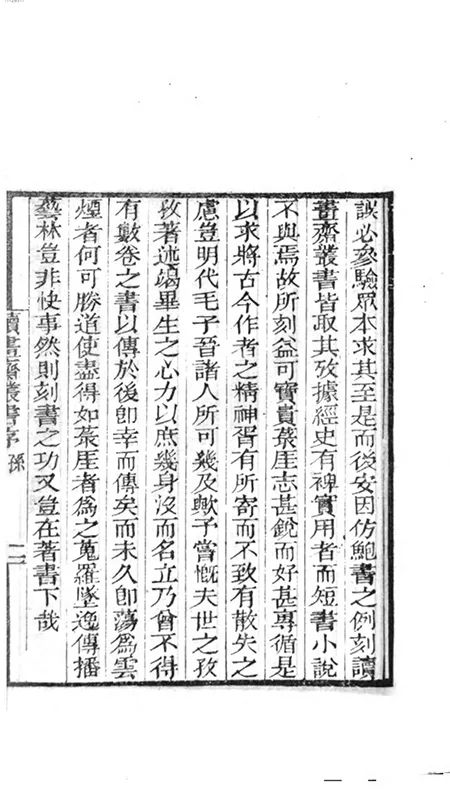 誤必參驗眾本求其至是而後安因仿鮑書之例刻讀
畫齋叢書皆取其攷據經史有裨實用者而短書小說
不與焉故所刻益可寶貴菉厓志甚銳而好甚專循是
以求將古今作者之精神胥有所寄而不致有散失之
慮豈明代毛子晉諸人所可幾及歟予嘗慨夫世之攷
攷著述竭畢生之心力以庶幾身沒而名立乃曾不得
有數卷之書以傳於後卽幸而傳矣而未久卽蕩爲雲
煙者何可勝道使盡得如菉厓者爲之蒐羅墜逸傳播
藝林豈非快事然則刻書之功又豈在著書下哉
讀畫齋叢書序 孫 二